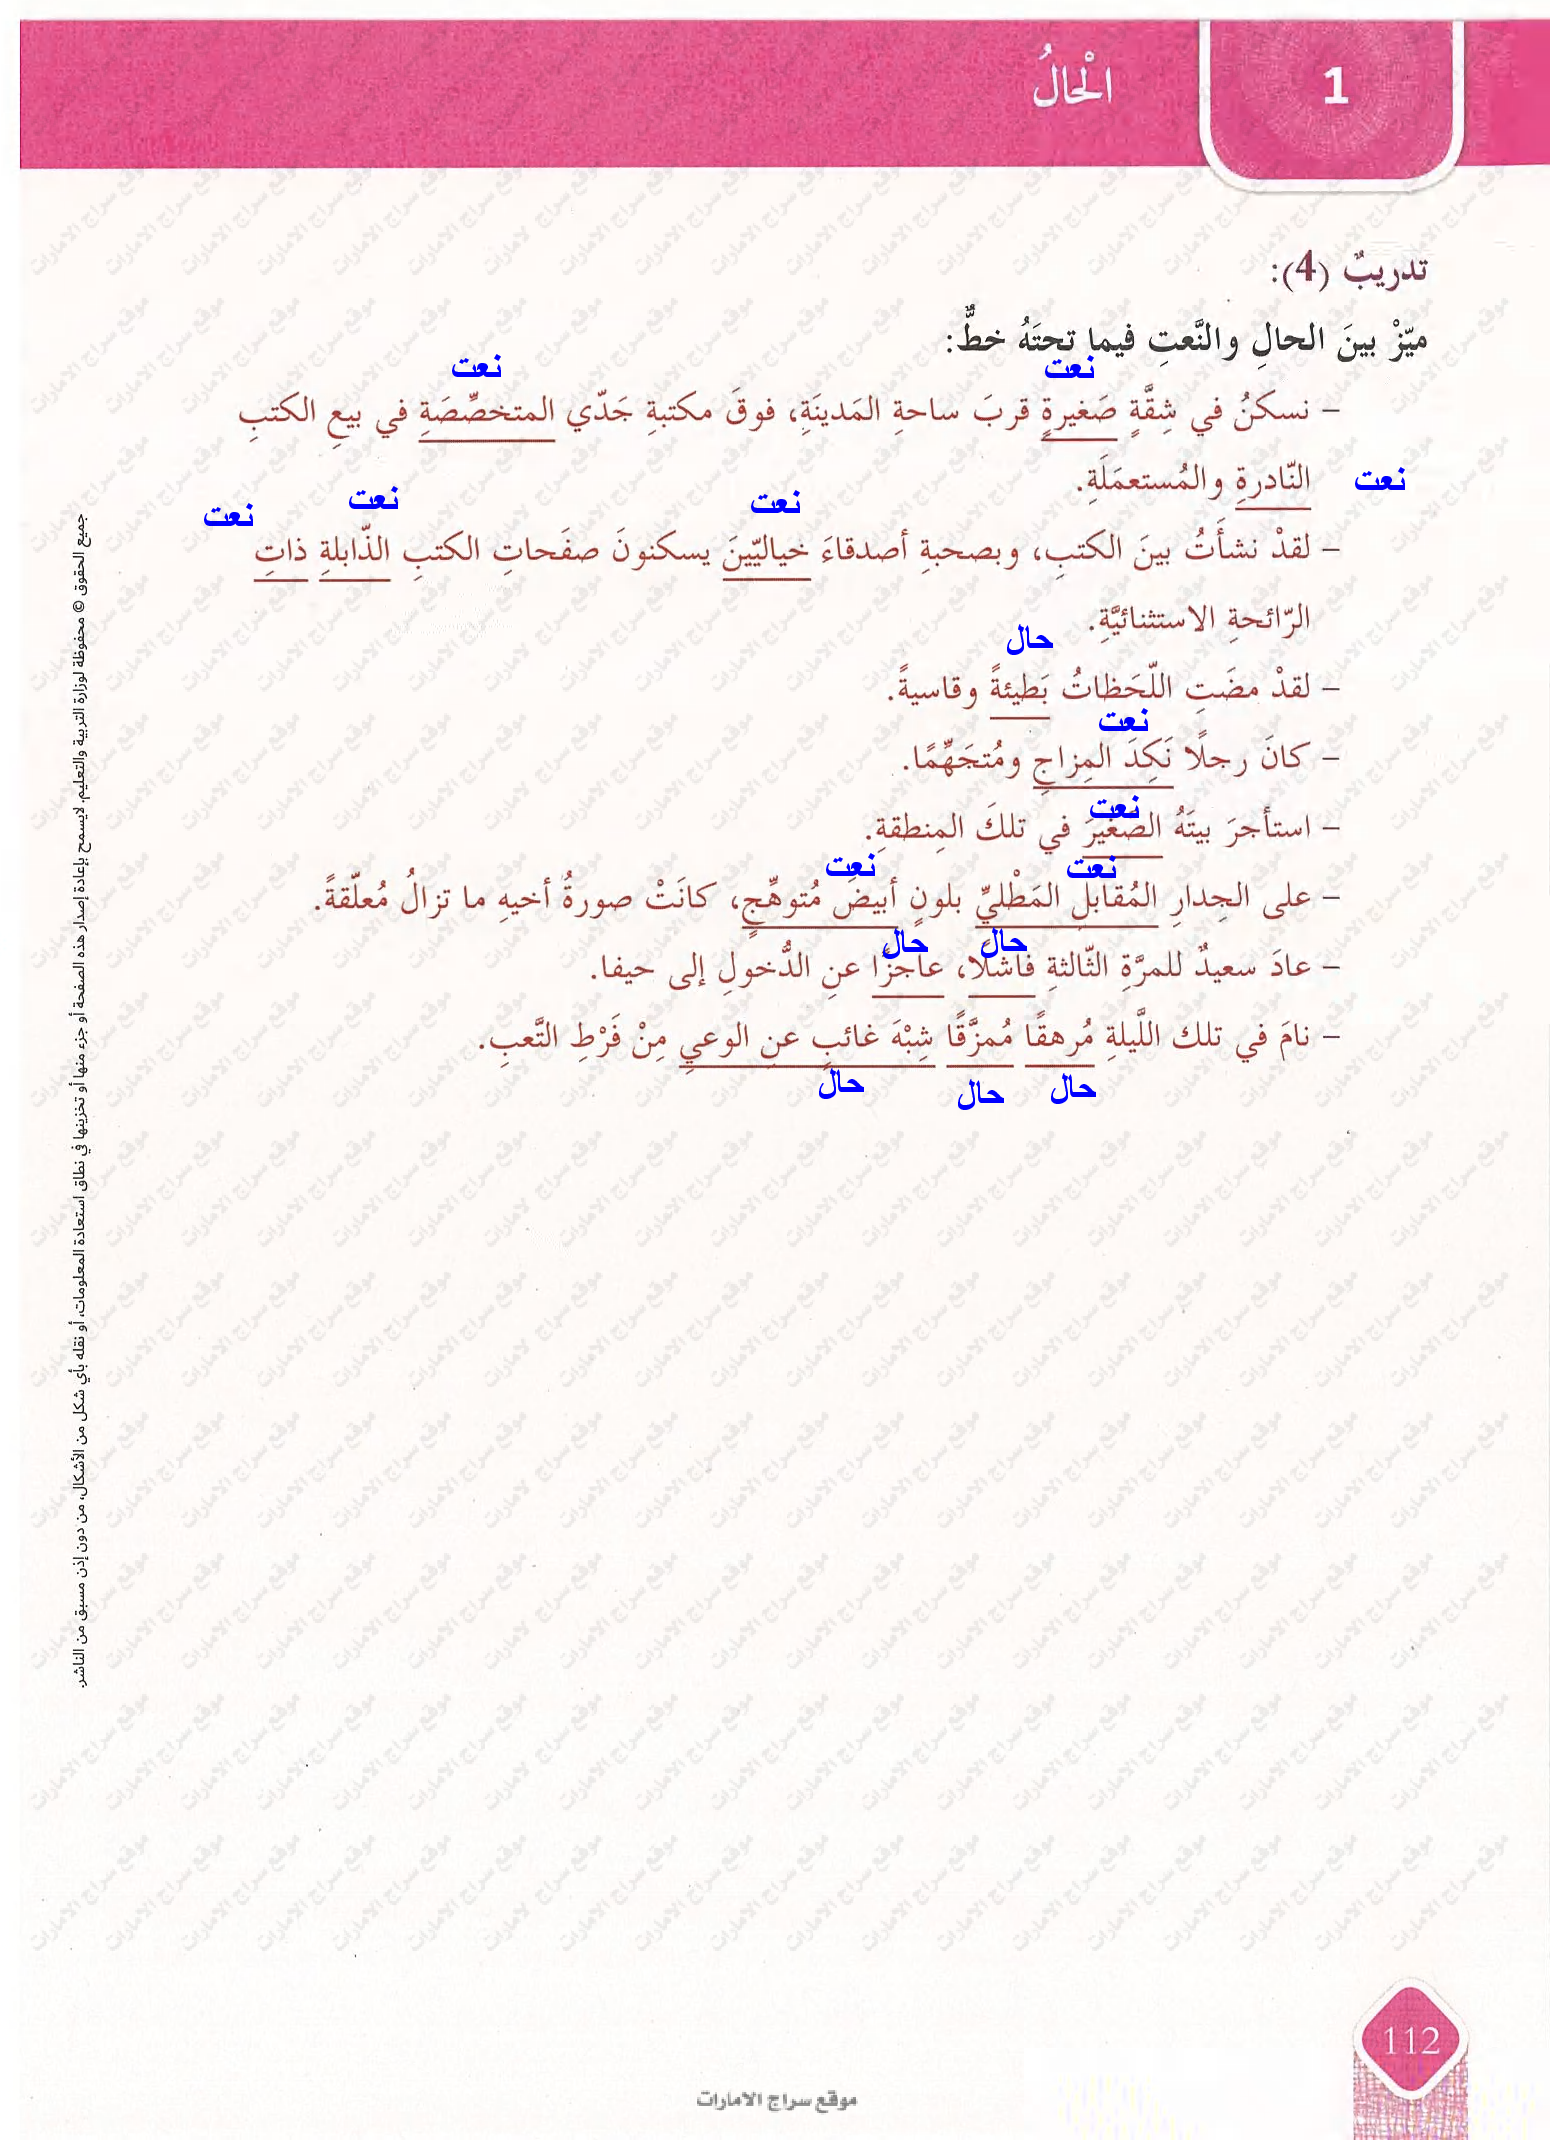 1
الْحَالُ
تدريبٌ (4):
ميّزْ بينَ الحالِ والنَّعتِ فيما تحتَهُ خطٌّ:
نعت نعت
– نسكنُ في شِقَّةٍ صَغيرةٍ قربَ ساحةِ المَدينَةِ، فوقَ مكتبةِ جَدّي المتخصِّصَةِ في بيعِ الكتبِ
نعت النّادرةِ والمُستعمَلَةِ.
نعت نعت نعت
– لقدْ نشأَتُ بينَ الكتبِ، وبصحبةِ أصدقاءَ خياليّينَ يسكنونَ صفَحاتِ الكتبِ الذّابلةِ ذاتِ
الرّائحةِ الاستثنائيَّةِ.
حال
– لقدْ مضَتِ اللّحَظاتُ بَطيئةً وقاسيةً.
نعت
– كانَ رجلًا نَكِدَ المِزاجِ ومُتجَهِّمًا.
نعت
– استأجرَ بيتَهُ الصّغيرَ في تلكَ المِنطقةِ.
نعت نعت
– على الجِدارِ المُقابلِ المَطْليِّ بلونٍ أبيضَ مُتوهِّجٍ، كانَتْ صورةُ أخيهِ ما تزالُ مُعلّقةً.
حال حال
– عادَ سعيدٌ للمرَّةِ الثّالثةِ فاشلًا، عاجزًا عنِ الدُّخولِ إلى حيفا.
– نامَ في تلك اللَّيلةِ مُرهقًا مُمزَّقًا شِبْهَ غائبٍ عنِ الوعيِ مِنْ فَرْطِ التَّعبِ.
حال حال حال
جميع الحقوق © محفوظة لوزارة التربية والتعليم. لايسمح بإعادة إصدار هذه الصفحة أو جزء منها أو تخزينها في نطاق استعادة المعلومات، أو نقله بأي شكل من الأشكال، من دون إذن مسبق من الناشر.
112
موقع سراج الامارات